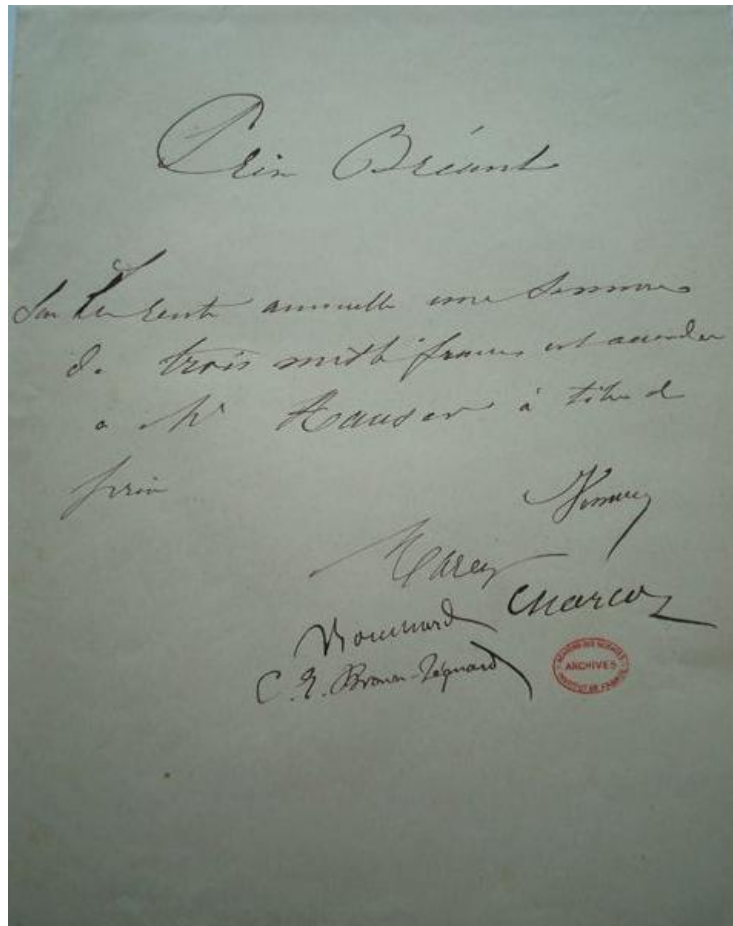 Prix Bréant
Sur la rente annuelle une somme
de trois mille francs est accordée
a Mr Hauser à titre de
prix
Marey
Bouchard Charcot
C. E. Brown-Séquard
ACADÉMIE DES SCIENCES
ARCHIVES
INSTITUT DE FRANCE